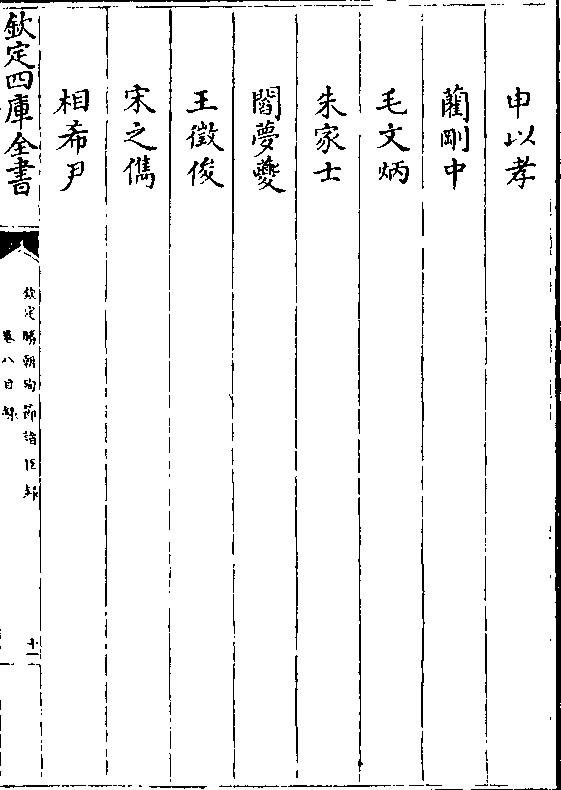 申以孝
藺剛中
毛文炳
朱家士
閻夢夔
王徵俊
宋之儁
相希尹
欽定四庫全書
欽定勝朝殉節諸臣録
卷八目録
十一